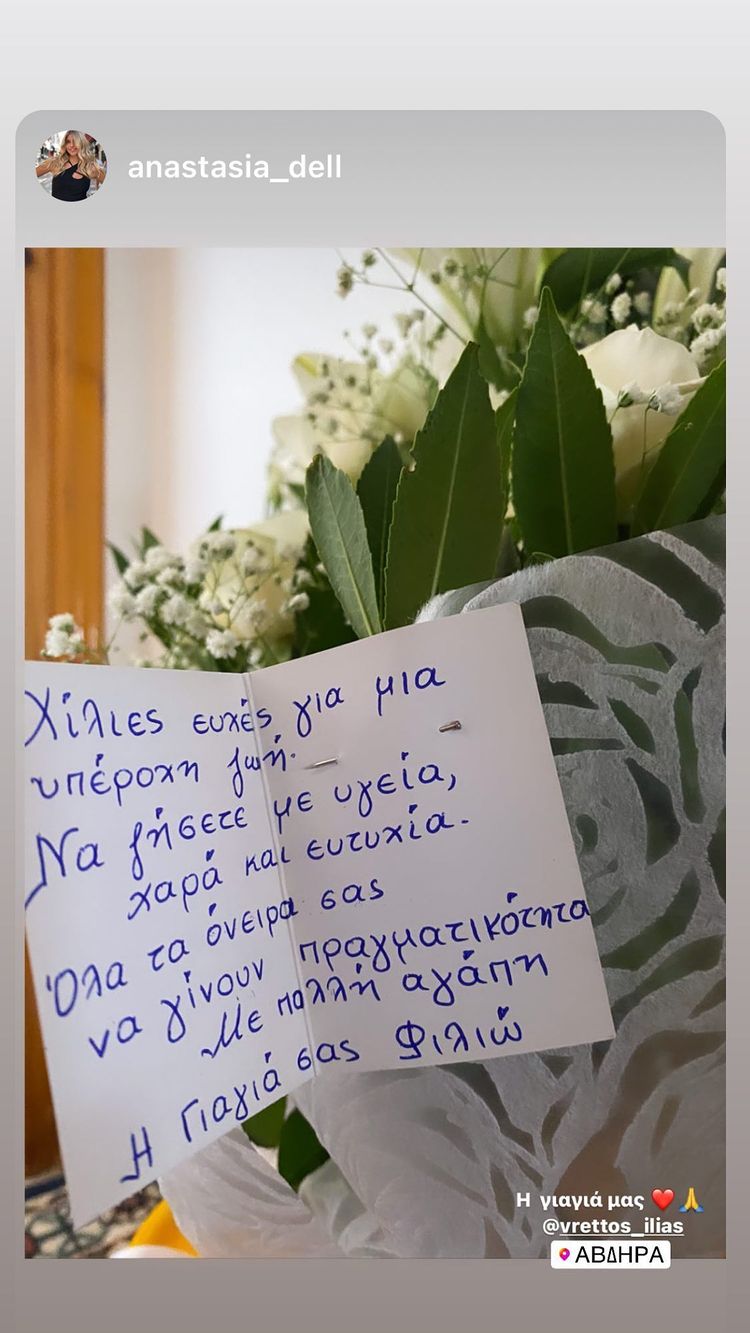 anastasia_dell
Χίλιες ευχές για μια
υπέροχη ζωή.
Να ζήσετε με υγεία,
χαρά και ευτυχία.
Όλα τα όνειρα σας
να γίνουν πραγματικότητα
Με πολλή αγάπη
Η Γιαγιά σας Φιλιώ
Η γιαγιά μας ❤️🙏
@vrettos_ilias
ΑΒΔΗΡΑ